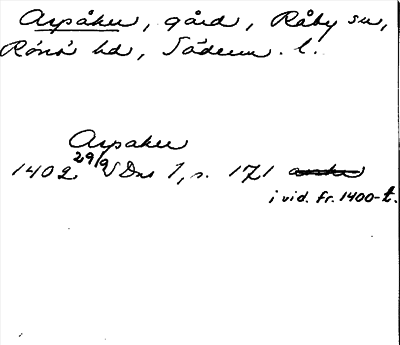 Aspåker, gård, Råby sn,
Rönö hd, Söderm. l.
Aspaker
1402 29/9 SDns 1, s. 171
i vid. fr. 1400-t.